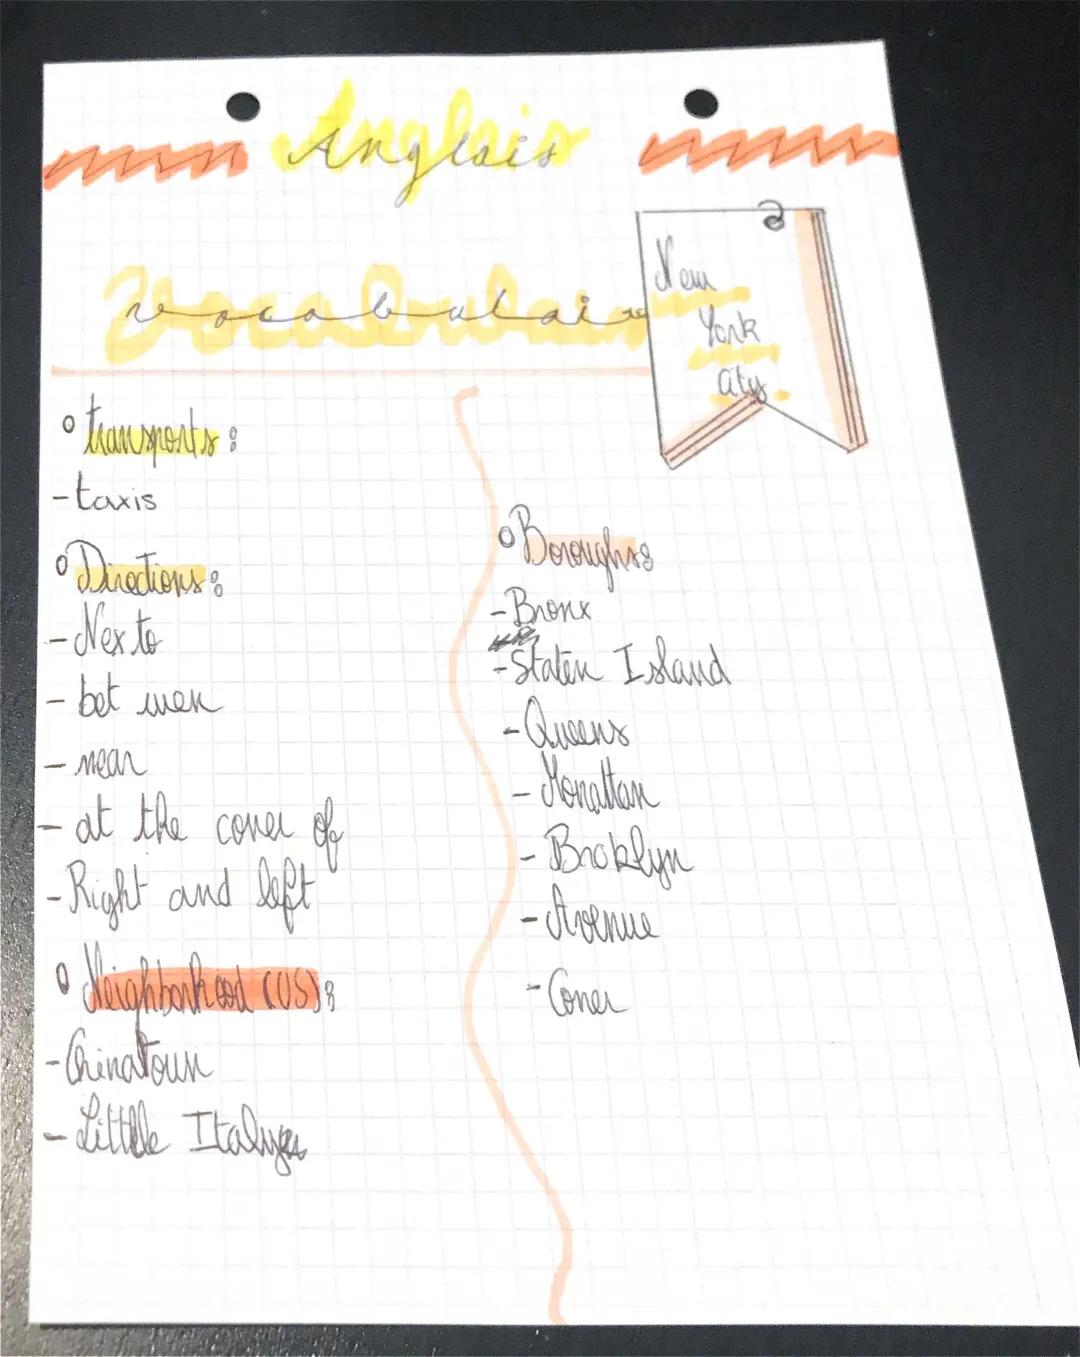 Anglais
vocabulaire
New
York
City
transports:
-taxis
Directions:
- Nex to
- bet wen
- near
- at the coner of
- Right and left
Neighborhood (US):
- Chinatown
- Little Italy
Boroughs:
- Bronx
- Staten Island
- Queens
- Monattan
- Broklyn
- Avenue
- Coner